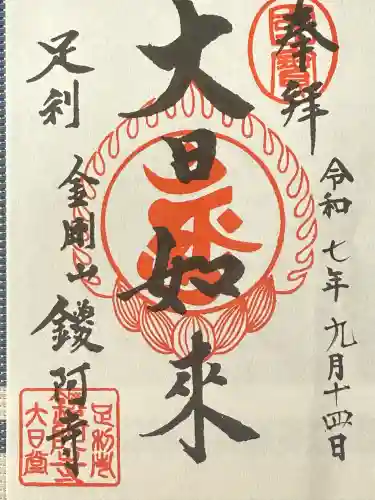 奉拜
令和七年九月十四日
大日如来
足利
金剛山 鑁阿寺
大日堂